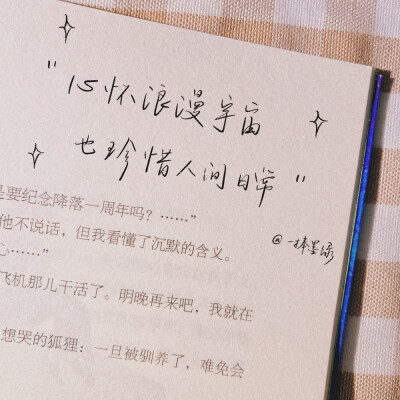 "心怀浪漫宇宙
也珍惜人间日常"
是要纪念降落一周年吗？……"
他不说话，但我看懂了沉默的含义。
@一捧墨绿
心……"
飞机那儿干活了。明晚再来吧，我就在
想哭的狐狸：一旦被驯养了，难免会